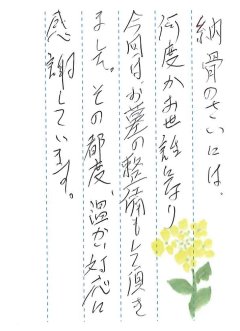 納骨のさいには、
何度かお世話になり
今回は、お墓の整備もして頂き
ました。その都度、温かい対応に
感謝しています。